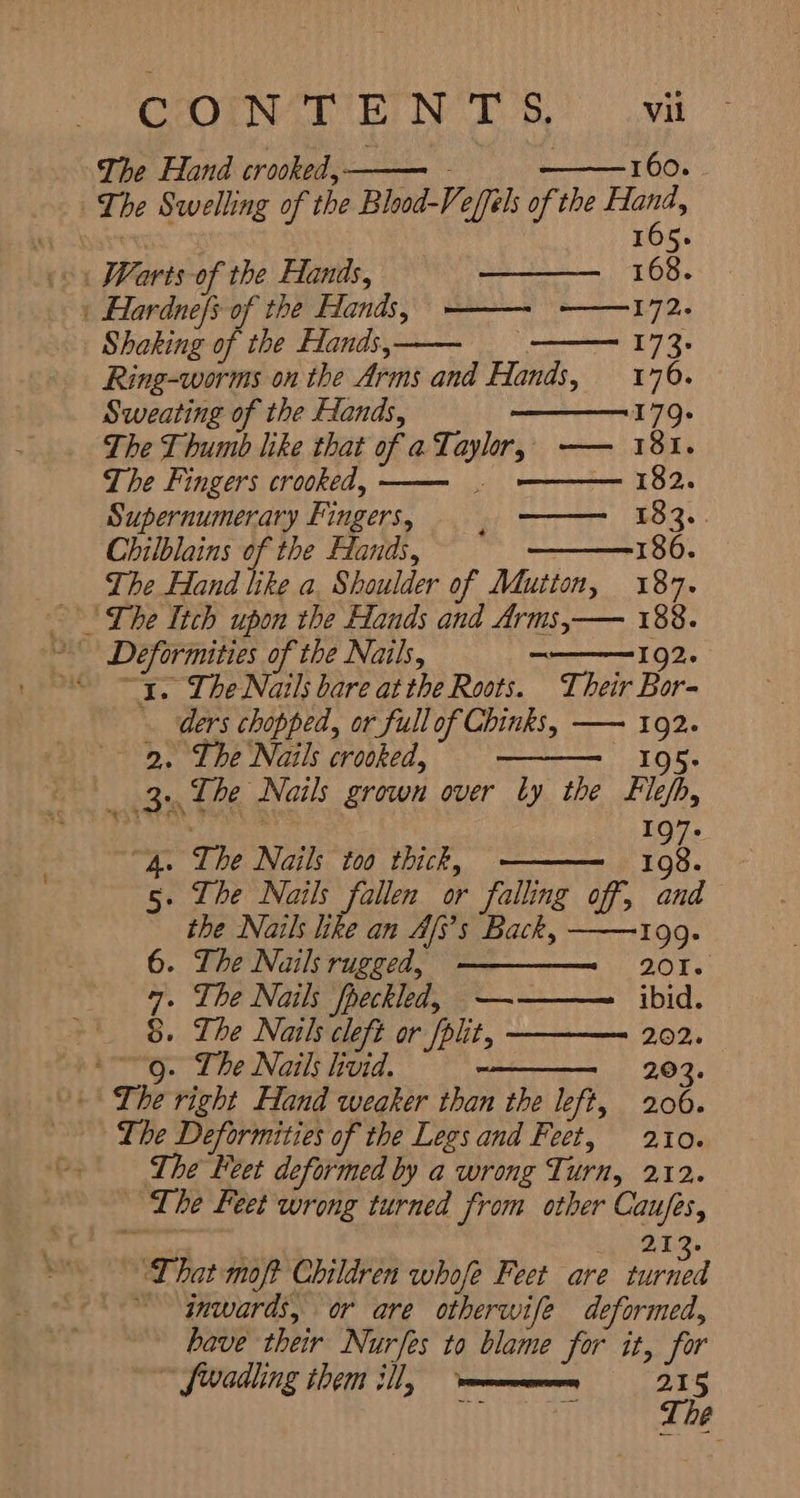 CONTENTS. vii
The Hand crooked,—— ——160.
The Swelling of the Blood-Veſſels of the Hand,
165.
Warts of the Hands, ——— 168.
Hardneſs of the Hands, —— ——172.
Shaking of the Hands,—— ——— 173.
Ring-worms on the Arms and Hands, 176.
Sweating of the Hands, ———179.
The Thumb like that of a Taylor, —— 181.
The Fingers crooked, —— ——— 182.
Supernumerary Fingers, ——— 183.
Chilblains of the Hands, ———186.
The Hand like a Shoulder of Mutton, 187.
The Itch upon the Hands and Arms,—— 188.
Deformities of the Nails, ———192.
1. The Nails bare at the Roots. Their Bor-
ders chopped, or full of Chinks, —— 192.
2. The Nails crooked, ——— 195.
3. The Nails grown over by the Fleſh,
197.
4. The Nails too thick, ——— 198.
5. The Nails fallen or falling off, and
the Nails like an Aſs's Back, ——199.
6. The Nails rugged, ——— 201.
7. The Nails ſpeckled, ——— ibid.
8. The Nails cleft or ſplit, ——— 202.
9. The Nails livid. ——— 203.
The right Hand weaker than the left, 206.
The Deformities of the Legs and Feet, 210.
The Feet deformed by a wrong Turn, 212.
The Feet wrong turned from other Cauſes,
213.
That moſt Children whoſe Feet are turned
inwards, or are otherwiſe deformed,
have their Nurſes to blame for it, for
ſwadling them ill, ——— 215
The